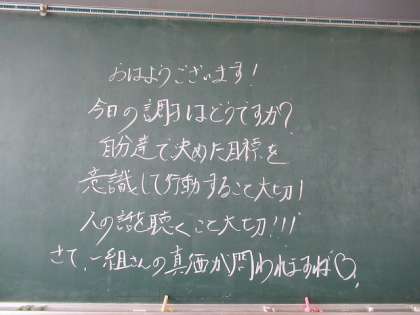 おはようございます!
今日の調子はどうですか?
自分達で決めた目標を
意識して行動すること大切!
人の話を聴くこと大切!!!
さて、一組さんの真価が問われますね♡!